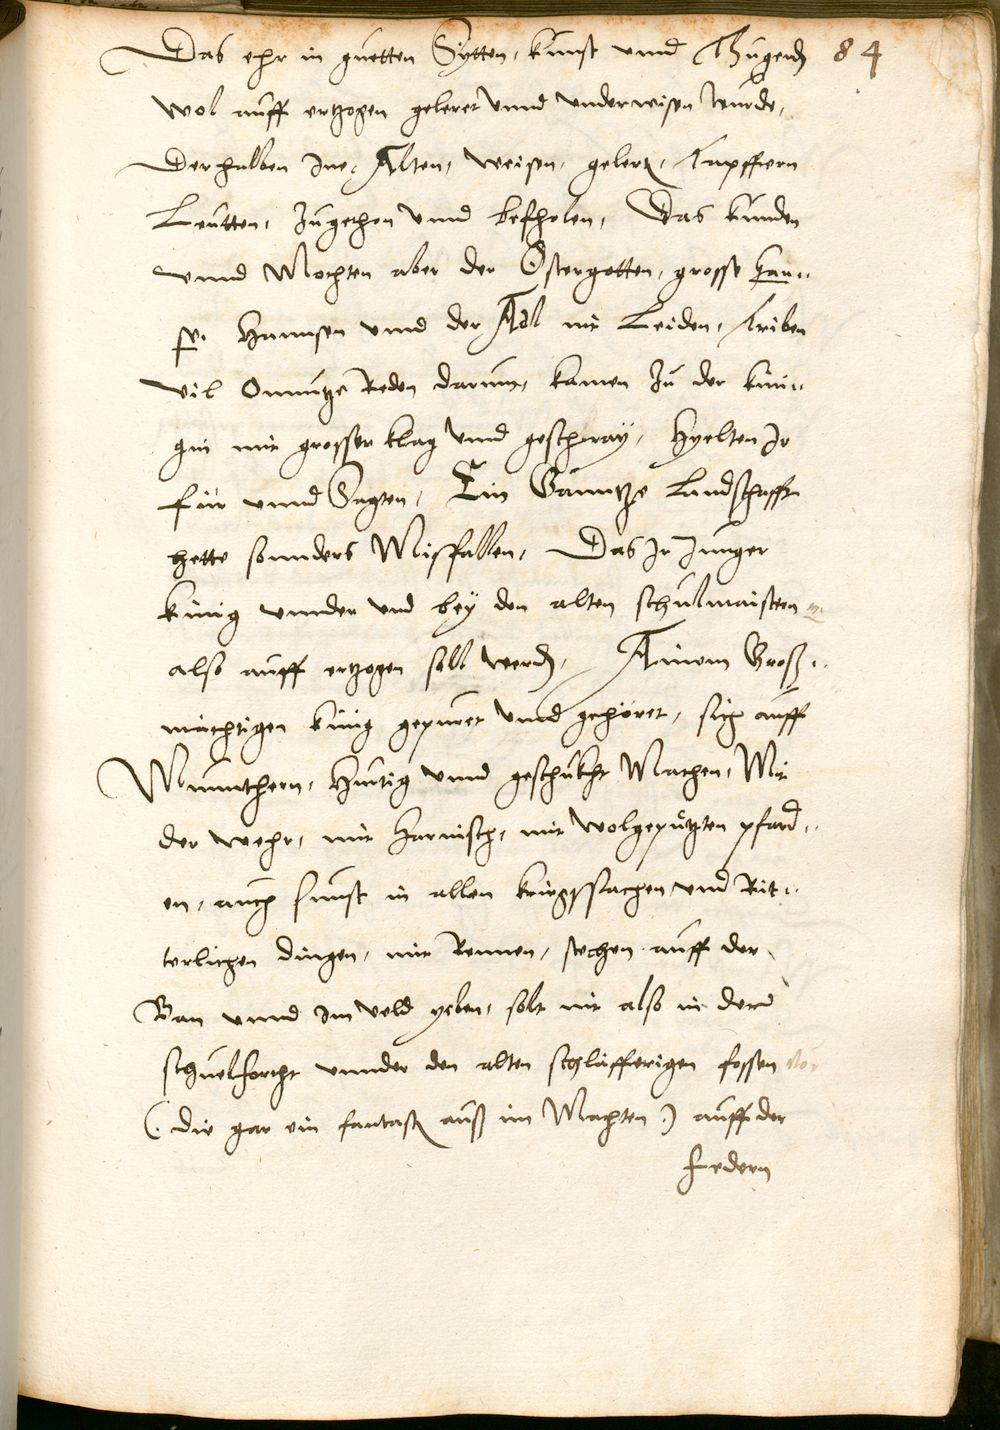 Das ehr in guetten Sytten, kunst vnnd Thugend 84
wol auff ertzogen geleret vnnd vnderwisen wurde,
Derhalben Ine, Alten, weisen, gelert, Tapffern
Leutten, zugethon vnnd befholen, Das kunden
vnnd Mochten aber der Ostergotten, grosse han-,,
ße. Hannsen vnnd der Adl nit Leiden, triben
vil Onnutze Reden darumb, kamen zu der küni-,,
gin mit grosser klag vnnd geschray, Hyelten Ir
für vnnd Sagten, Ein Ganntze Landschafft
hette sonnders Missfallen, Das Ir Junger
künig vnnder vnd bey den alten schulmaistern
also auff ertzogen soll werd, Ainem Groß,,
mächtigen künig gepuret vnnd gehöret, sich auff
Munnthern, Hurtig vnnd geschukht Machen, Mit
der wehr, mit Harnisch, mit wolgeputzten pfard,,
en, auch sunst in allen kriegssachen vnnd Rit,,
terlichen dingen, mit Rennen, stechen auff der
Ban vnnd Im veld yeben, solt nit also in derr
schuelforcht vnnder den alten schläfferigen fossen
(. die gar ein fantast auß im Machten .) auff der
federn